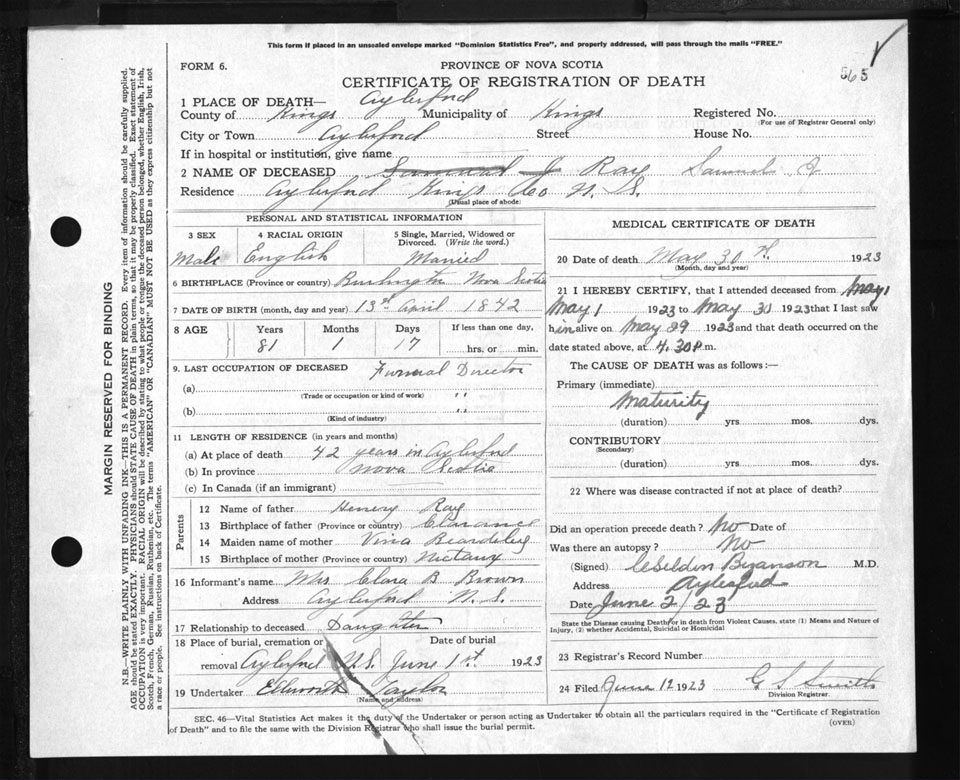 This form if placed in an unsealed envelope marked "Dominion Statistics Free", and properly addressed, will pass through the mails "FREE."
FORM 6.
PROVINCE OF NOVA SCOTIA
565
CERTIFICATE OF REGISTRATION OF DEATH
1 PLACE OF DEATH— Aylesford
County of Kings Municipality of Kings Registered No.
(For use of Registrar General only)
City or Town Aylesford Street House No.
If in hospital or institution, give name
2 NAME OF DECEASED Samual J Ray Samuel J
Residence Aylesford Kings Co N. S.
(Usual place of abode)
PERSONAL AND STATISTICAL INFORMATION
3 SEX 4 RACIAL ORIGIN 5 Single, Married, Widowed or Divorced. (Write the word.)
Male English Married
6 BIRTHPLACE (Province or country) Burlington Nova Scotia
7 DATE OF BIRTH (month, day and year) 13th April 1842
8 AGE Years Months Days If less than one day,
81 1 17 hrs. or min.
9. LAST OCCUPATION OF DECEASED Funeral Director
(a) "
(Trade or occupation or kind of work)
(b) "
(Kind of industry)
11 LENGTH OF RESIDENCE (in years and months)
(a) At place of death 42 years in Aylesford
(b) In province Nova Scotia
(c) In Canada (if an immigrant)
Parents
12 Name of father Henery Ray
13 Birthplace of father (Province or country) Clarance
14 Maiden name of mother Vina Beardsley
15 Birthplace of mother (Province or country) Nictaux
16 Informant's name Mrs Clara B Brown
Address Aylesford N. S.
17 Relationship to deceased Daughter
18 Place of burial, cremation or Date of burial
removal Aylesford N.S. June 1st 1923
19 Undertaker Ellworth Taylor
(Name and address)
MEDICAL CERTIFICATE OF DEATH
20 Date of death May 30th 1923
(Month, day and year)
21 I HEREBY CERTIFY, that I attended deceased from May 1
May 1 1923 to May 30 1923 that I last saw
him alive on May 29 1923 and that death occurred on
date stated above, at 4.30 P.m.
The CAUSE OF DEATH was as follows:—
Primary (immediate)
Maturity
(duration) yrs mos. dys.
CONTRIBUTORY
(Secondary)
(duration) yrs. mos. dys.
22 Where was disease contracted if not at place of death?
Did an operation precede death? No Date of
Was there an autopsy? No
(Signed) M.D.
Address Aylesford
Date June 2/23
State the Disease causing Death, or in death from Violent Causes, state (1) Means and Nature of
Injury, (2) whether Accidental, Suicidal or Homicidal
23 Registrar's Record Number
24 Filed June 12 1923 G S Smith
Division Registrar.
SEC. 46—Vital Statistics Act makes it the duty of the Undertaker or person acting as Undertaker to obtain all the particulars required in the "Certificate of Registration
of Death" and to file the same with the Division Registrar who shall issue the burial permit.
(OVER)
MARGIN RESERVED FOR BINDING
N.B.—WRITE PLAINLY WITH UNFADING INK—THIS IS A PERMANENT RECORD. Every item of information should be carefully supplied.
AGE should be stated EXACTLY. PHYSICIANS should STATE CAUSE OF DEATH in plain terms, so that it may be properly classified. Exact statement of
OCCUPATION is very important. RACIAL ORIGIN will be described by stating to what people or tongue the deceased person belonged, whether English, Irish,
Scotch, French, German, Russian, Ruthenian, etc. The terms "AMERICAN" OR "CANADIAN" MUST NOT BE USED as they express citizenship but not
a race or people. See instructions on back of Certificate.